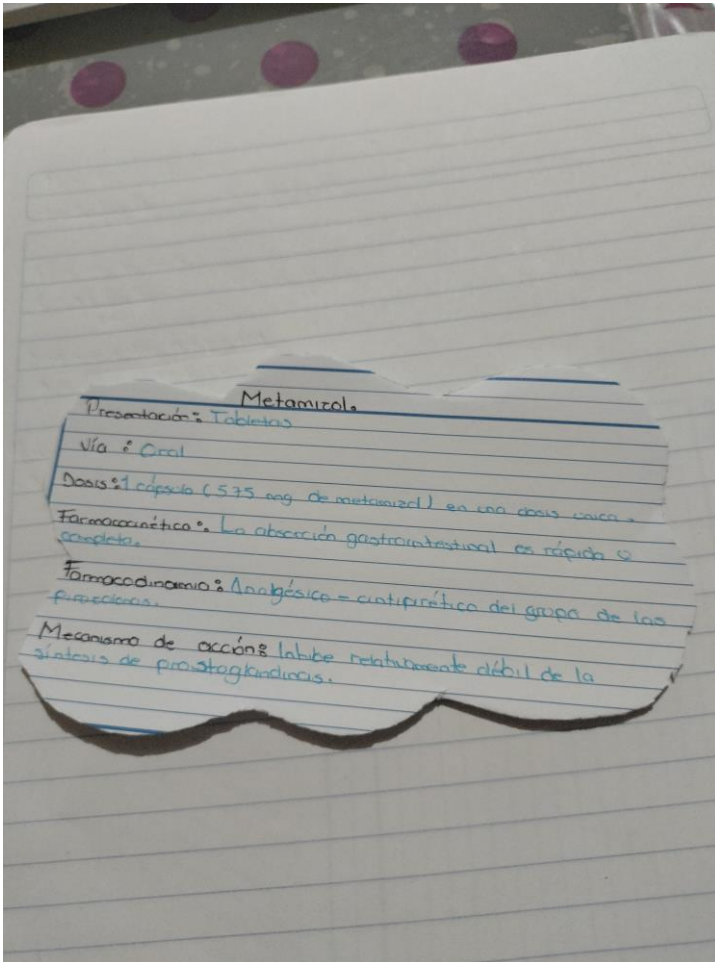 Metamizol.
Presentación: Tabletas
Vía : Oral
Dosis: 1 cápsula (575 mg de metamizol) en una dosis unica.
Farmacocinética: La absorción gastrointestinal es rápida y
completa.
Farmacodinamia: Analgésico - antipirético del grupo de las
pirazolonas.
Mecanismo de acción: Inhibe relativamente débil de la
síntesis de prostaglandinas.